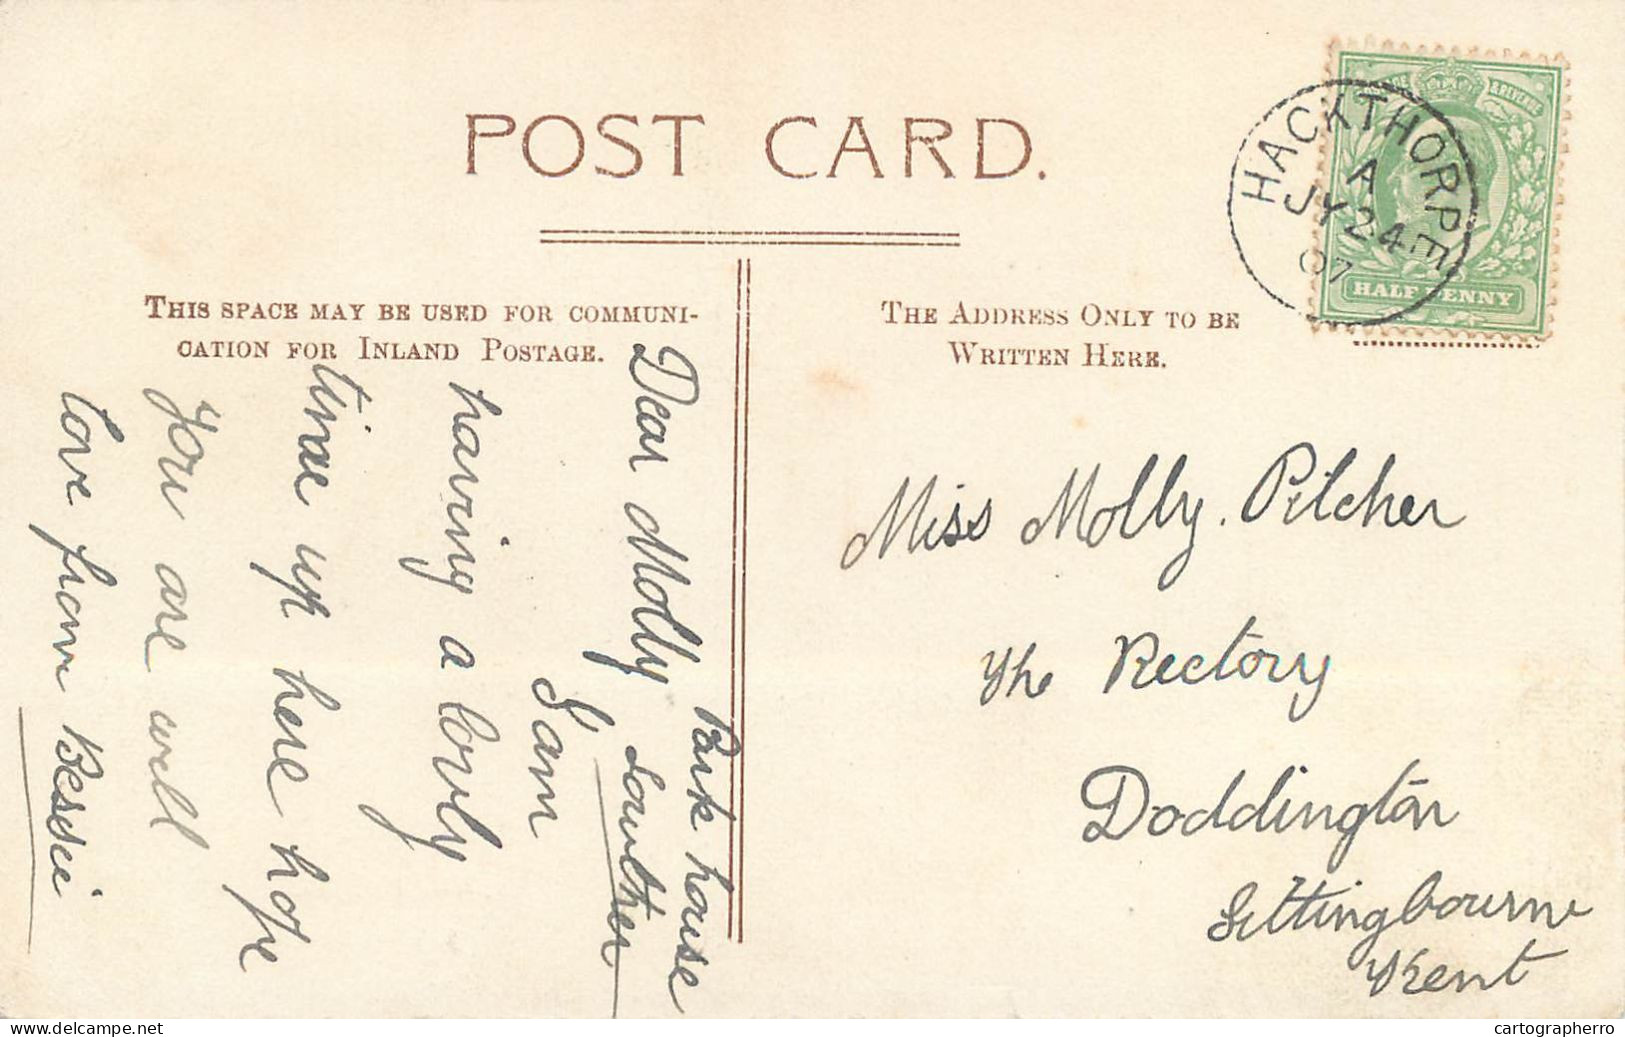 POST CARD.
THIS SPACE MAY BE USED FOR COMMUNI-
CATION FOR INLAND POSTAGE.
THE ADDRESS ONLY TO BE
WRITTEN HERE.
HACKTHORPE
A
JY 24
07
& REVENUE
HALF PENNY
Park house
Lowther
Dear Molly
I am
having a lovly
time up here hope
you are well
love from Bessie
Miss Molly. Pilcher
The Rectory
Doddington
Sittingbourne
Kent
delcampe.net
cartographerro